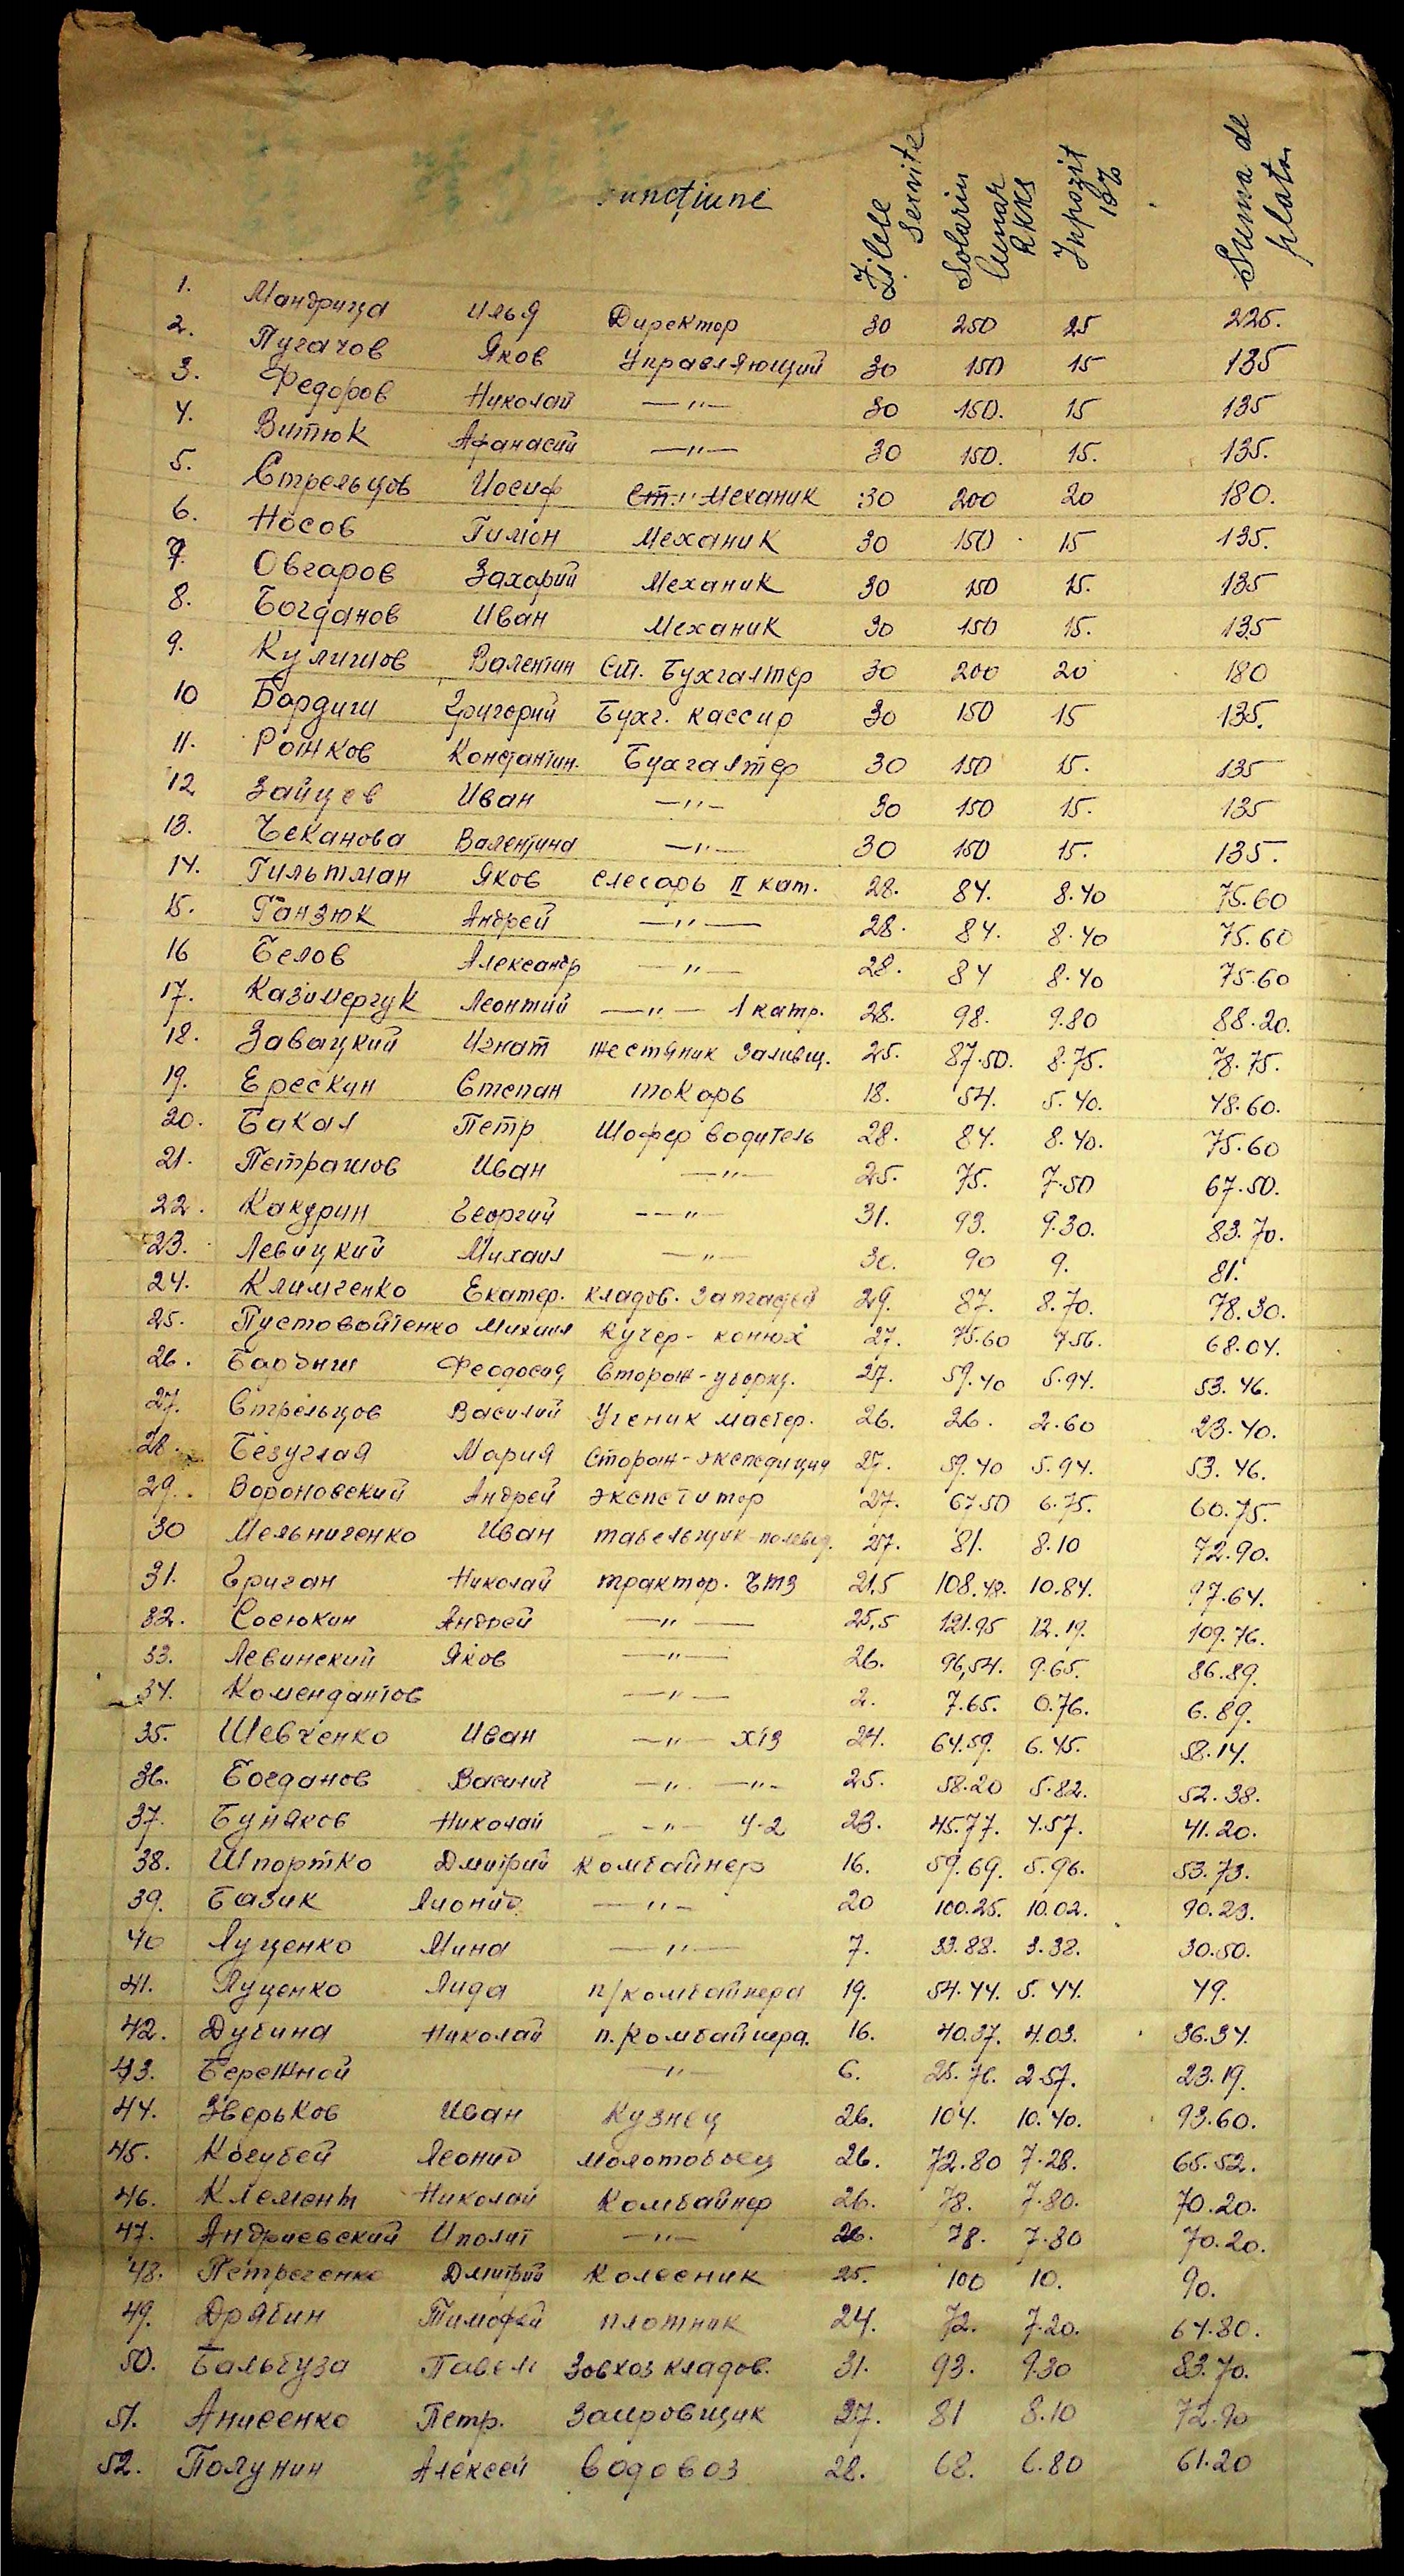 uncțiune Zilele Servite Solariu lunar RKKS Inpozit 10% Suma de plata
1. Мандрица Илья Директор 30 250 25 225.
2. Пугачов Яков Управляющий 30 150 15 135
3. Федоров Николай —"— 30 150. 15 135
4. Витюк Афанасий —"— 30 150. 15. 135.
5. Стрельцов Иосиф Ст. Механик 30 200 20 180.
6. Носов Гимон Механик 30 150 15 135.
7. Овчаров Захарий Механик 30 150 15. 135
8. Богданов Иван Механик 30 150 15. 135
9. Кулишов Валентин Ст. Бухгалтер 30 200 20 180
10 Бардиш Григорий Бухг. кассир 30 150 15 135.
11. Рожков Константин. Бухгалтер 30 150 15. 135
12 Зайцев Иван —"— 30 150 15. 135
13. Чеканова Валентина —"— 30 150 15. 135.
14. Гильтман Яков слесарь II кат. 28. 84. 8.40 75.60
15. Ганзюк Андрей —"— 28. 84. 8.40 75.60
16 Белов Александр —"— 28. 84 8.40 75.60
17. Казимерчук Леонтий —"— 1 катр. 28. 98. 9.80 88.20.
18. Завацкий Игнат жестяник заливщ. 25. 87.50. 8.75. 78.75.
19. Ерескин Степан токарь 18. 54. 5.40. 48.60.
20. Бакал Петр Шофер водитель 28. 84. 8.40. 75.60
21. Петрашов Иван —"— 25. 75. 7.50 67.50.
22. Какурин Георгий —"— 31. 93. 9.30. 83.70.
23. Левицкий Михаил —"— 30. 90 9. 81.
24. Климченко Екатер. кладов. Запчастей 29. 87. 8.70. 78.30.
25. Пустовойтенко Михаил Кучер-конюх 27. 75.60 7.56. 68.04.
26. Феодосия Сторож-уборщ. 27. 59.40 5.94. 53.46.
27. Стрельцов Василий Ученик мастер. 26. 26. 2.60 23.40.
28. Безуглая Мария Сторож-экспедиция 27. 59.40 5.94. 53.46.
29. Вороновский Андрей экспетитор 27. 67.50 6.75. 60.75.
30 Мельниченко Иван табельщик-полевод. 27. 81. 8.10 72.90.
31. Григан Николай трактор. ЧТЗ 21,5 108.48. 10.84. 97.64.
32. Сосюкин Андрей —"— 25,5 121.95 12.19. 109.76.
33. Левинский Яков —"— 26. 96,54. 9.65. 86.89.
34. Комендантов —"— 2. 7.65. 0.76. 6.89.
35. Шевченко Иван —"— ХТЗ 24. 64.59. 6.45. 58.14.
36. Богданов Василий —"— —"— 25. 58.20 5.82. 52.38.
37. Буняков Николай —"— У-2 23. 45.77. 4.57. 41.20.
38. Шпортко Дмитрий Комбайнер 16. 59.69. 5.96. 53.73.
39. Базик Лионид —"— 20 100.25. 10.02. 90.23.
40 Луценко Мина —"— 7. 33.88. 3.38. 30.50.
41. Луценко Лида п/комбайнера 19. 54.44. 5.44. 49.
42. Дубина Николай п.Комбайнера. 16. 40.37. 4.03. 36.34.
43. Бережной —"— 6. 25.76. 2.57. 23.19.
44. Зверьков Иван Кузнец 26. 104. 10.40. 93.60.
45. Кочубей Леонид молотобоец 26. 72.80 7.28. 65.52.
46. Клемент Николай Комбайнер 26. 78. 7.80. 70.20.
47. Андриевский Иполит —"— 26. 78. 7.80 70.20.
48. Петреченко Дмитрий Колесник 25. 100 10. 90.
49. Дрябин Тимофей плотник 24. 72. 7.20. 64.80.
50. Бальбуза Павел Зовхоз кладов. 31. 93. 9.30 83.70.
51. Анисенко Петр. Заправщик 27. 81 8.10 72.90
52. Полунин Алексей водовоз 28. 68. 6.80 61.20